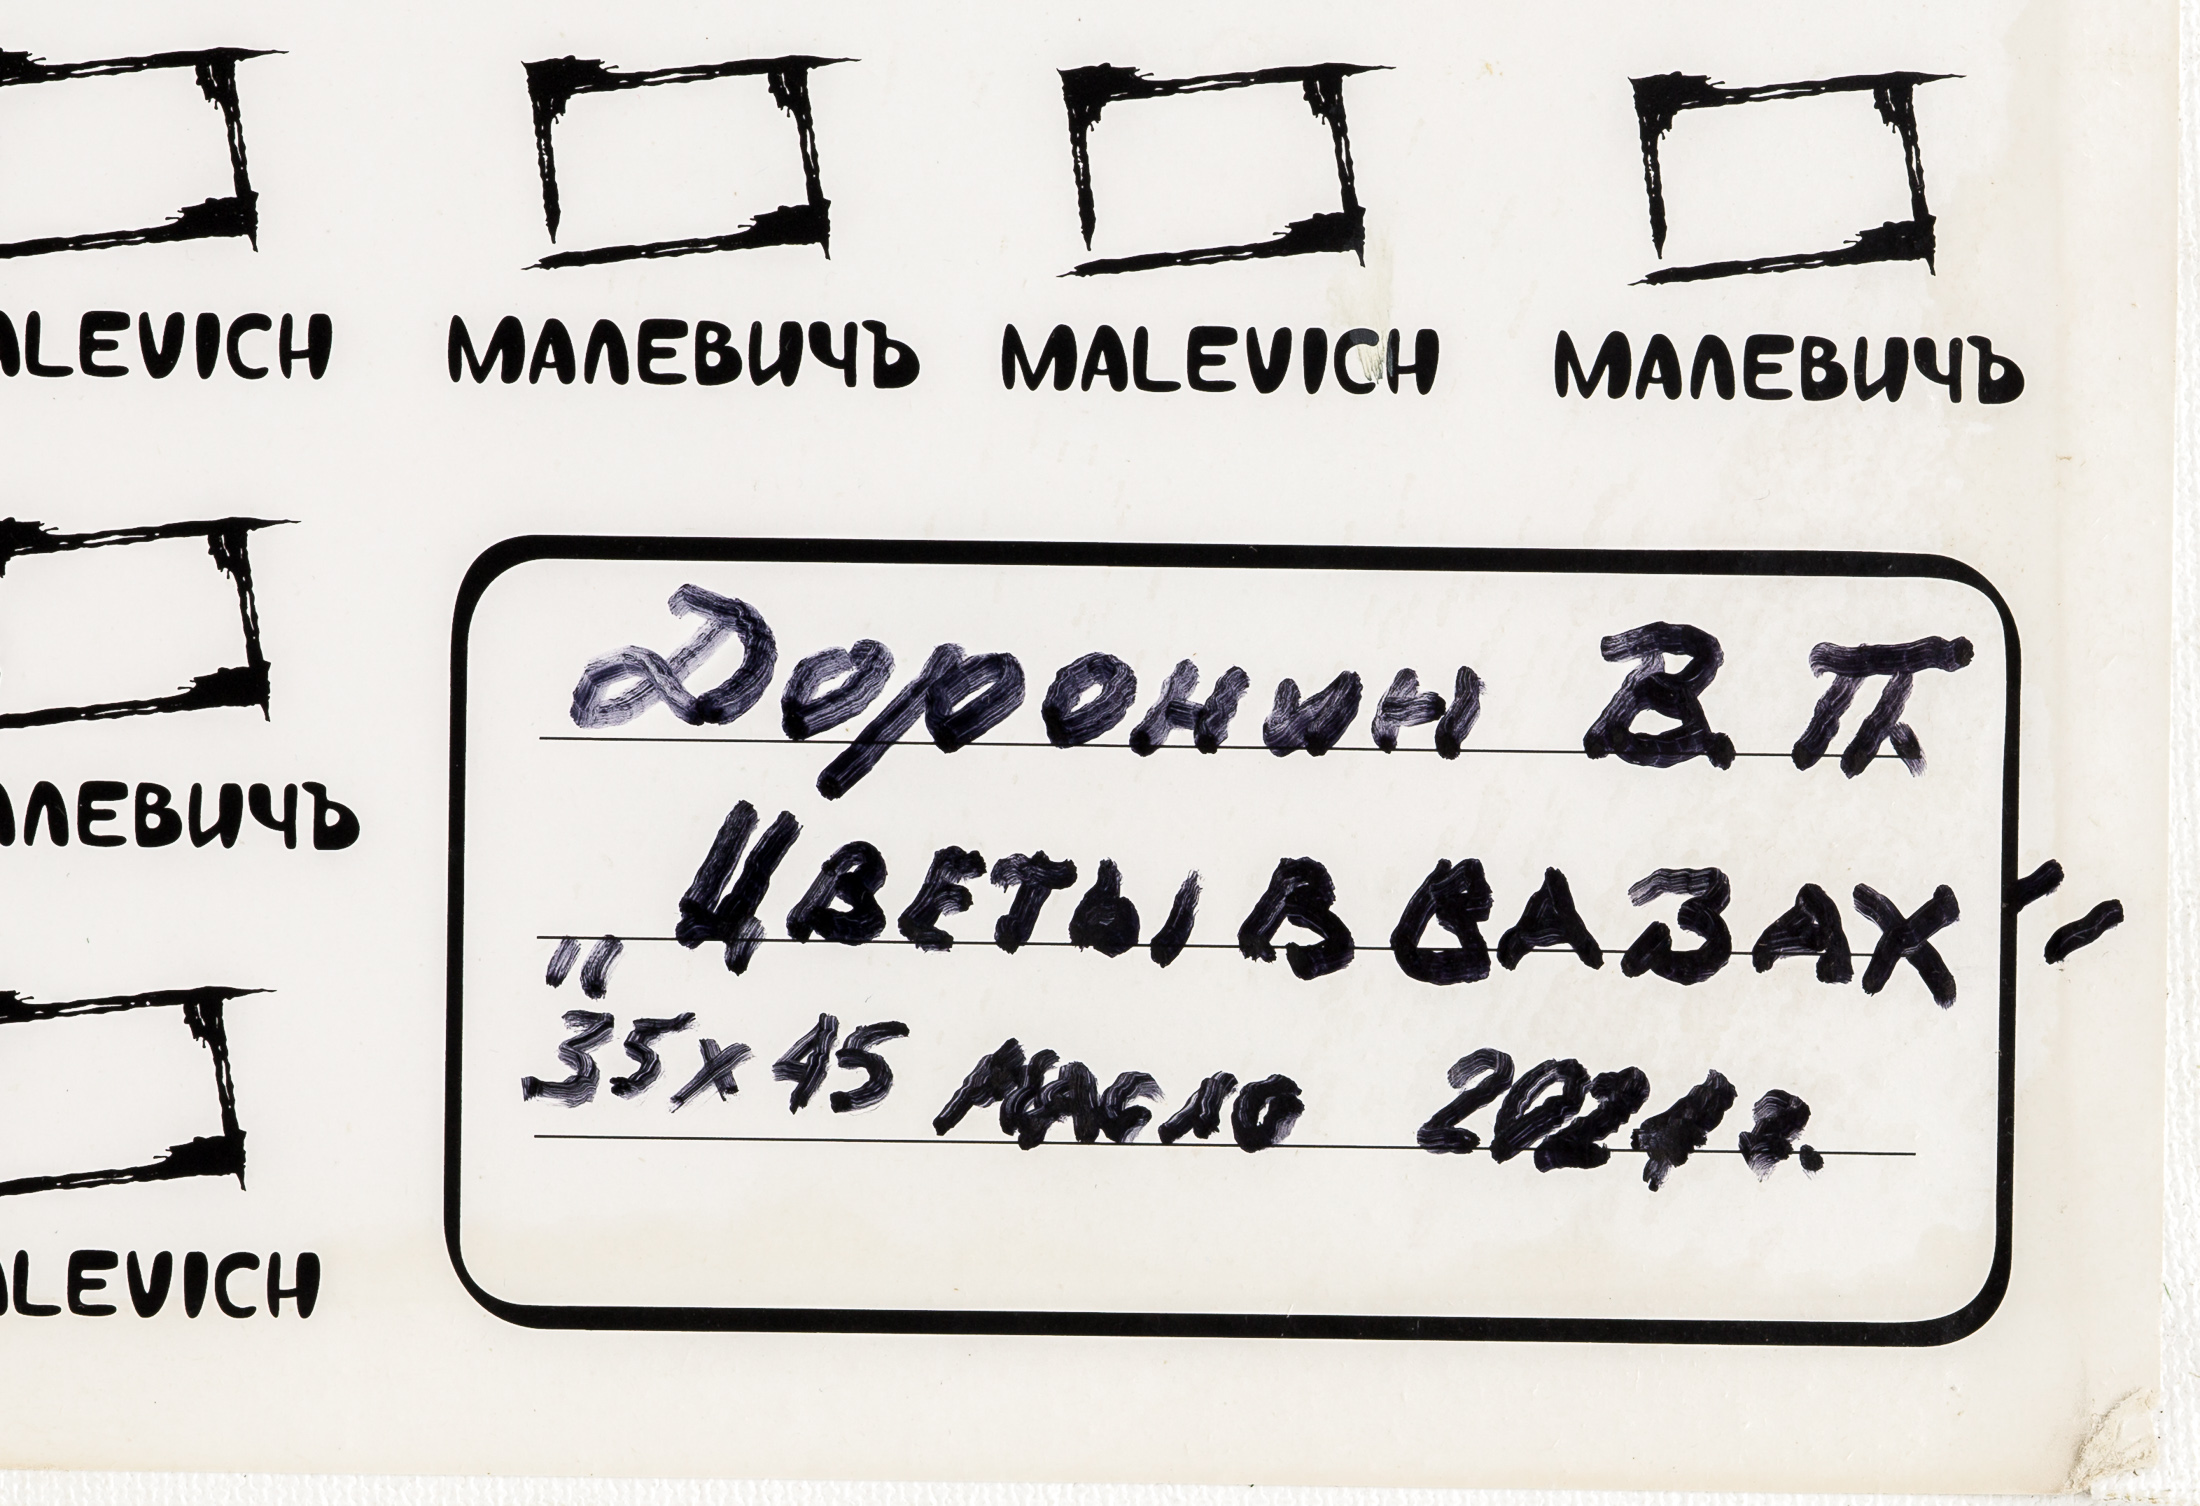 ALEVICH МАЛЕВИЧЪ MALEVICH МАЛЕВИЧЪ
АЛЕВИЧЪ
ALEVICH
Доронин В.П
„ЦВЕТЫ В ВАЗАХ"
35x45 масло 2021г.